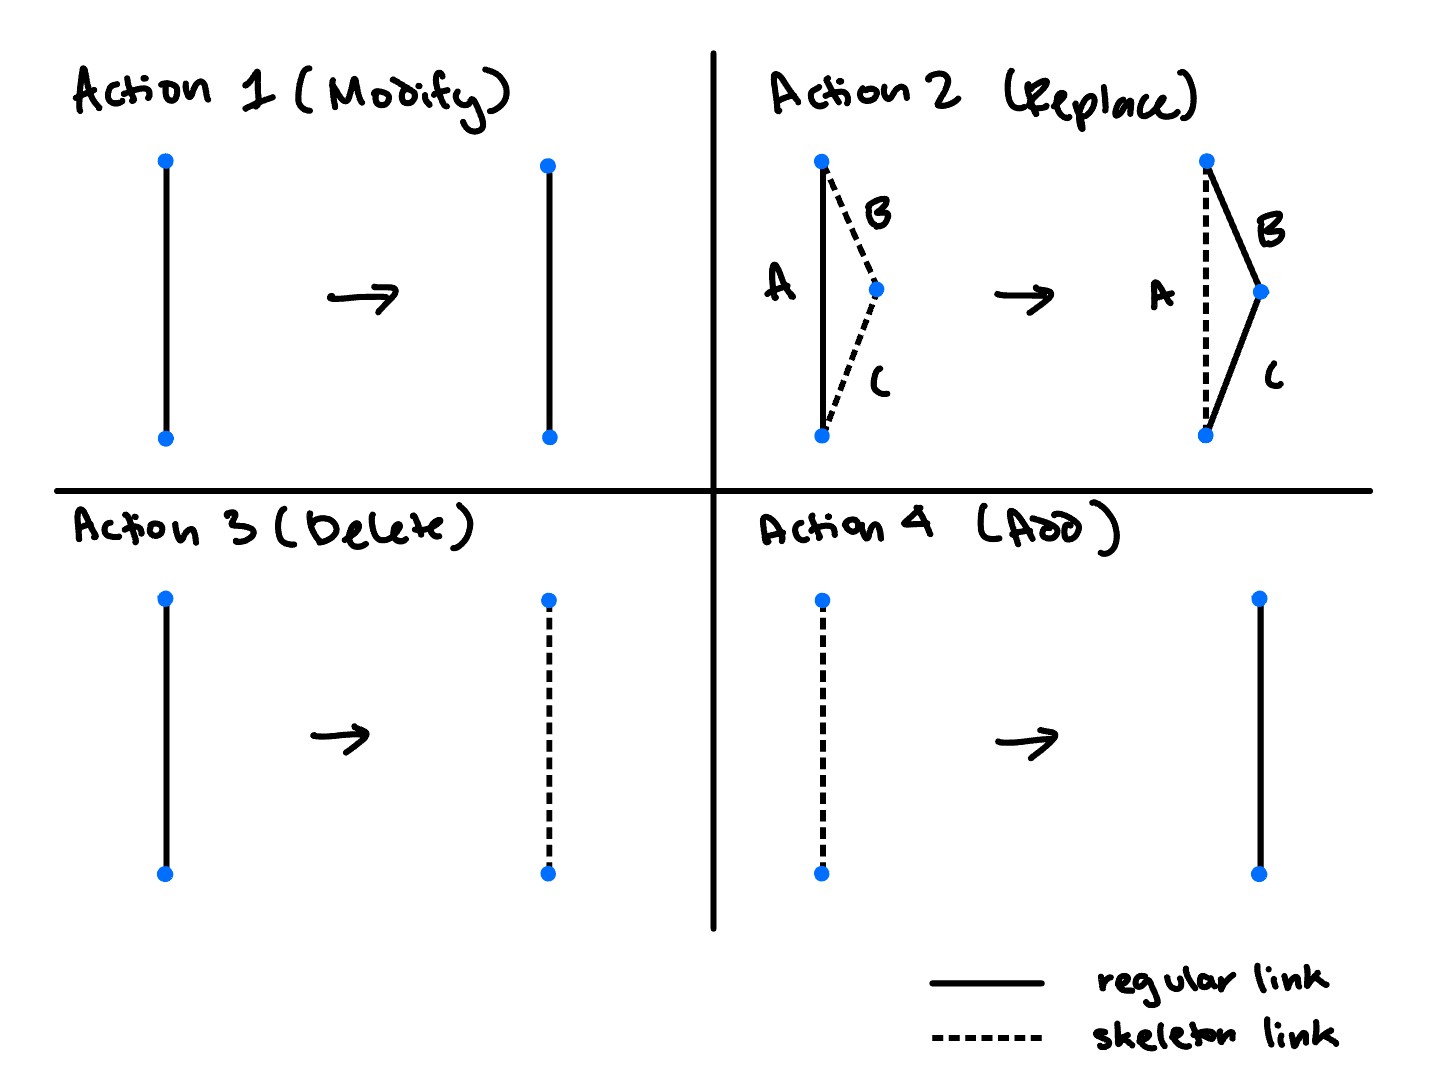 Action 1 (Modify)
Action 2 (Replace)
A
B
C
A
B
C
Action 3 (Delete)
Action 4 (Add)
regular link
skeleton link